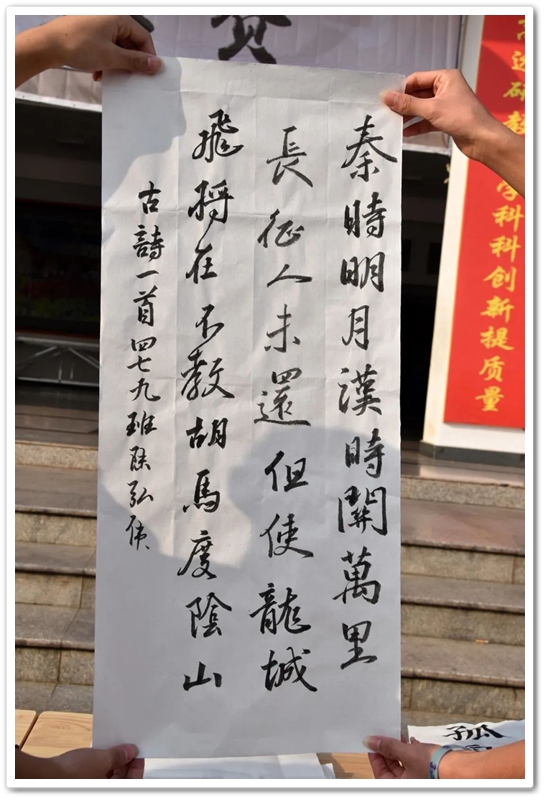 秦時明月漢時關萬里
長征人未還但使龍城
飛將在不教胡馬度陰山
古詩一首四七九班陈弘侯
学科科创新提质量
孤